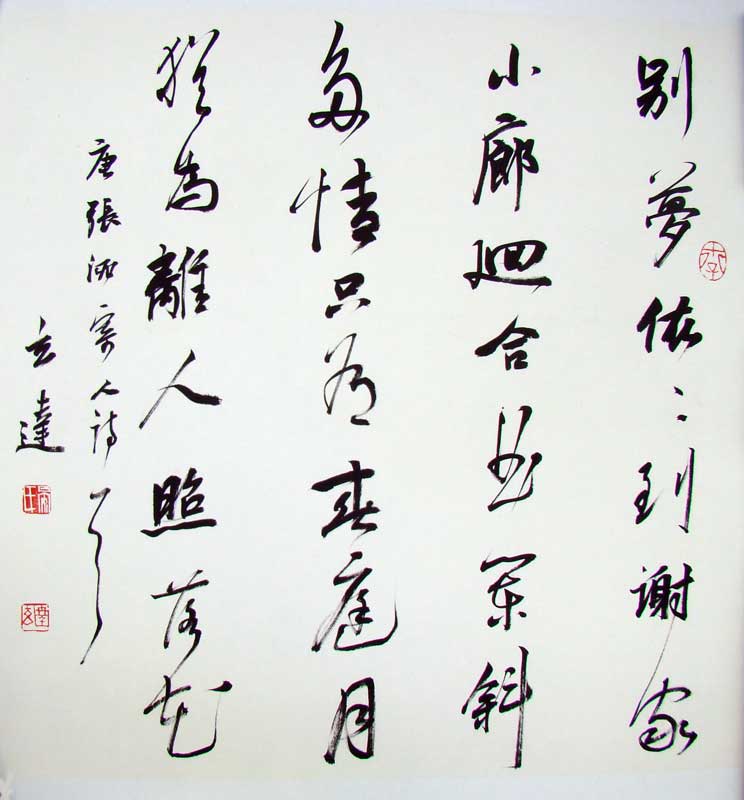 别夢依〻到謝家
小廊廻合曲闌斜
多情只有春庭月
猶為離人照落花
唐張泌寄人詩一首
玄達